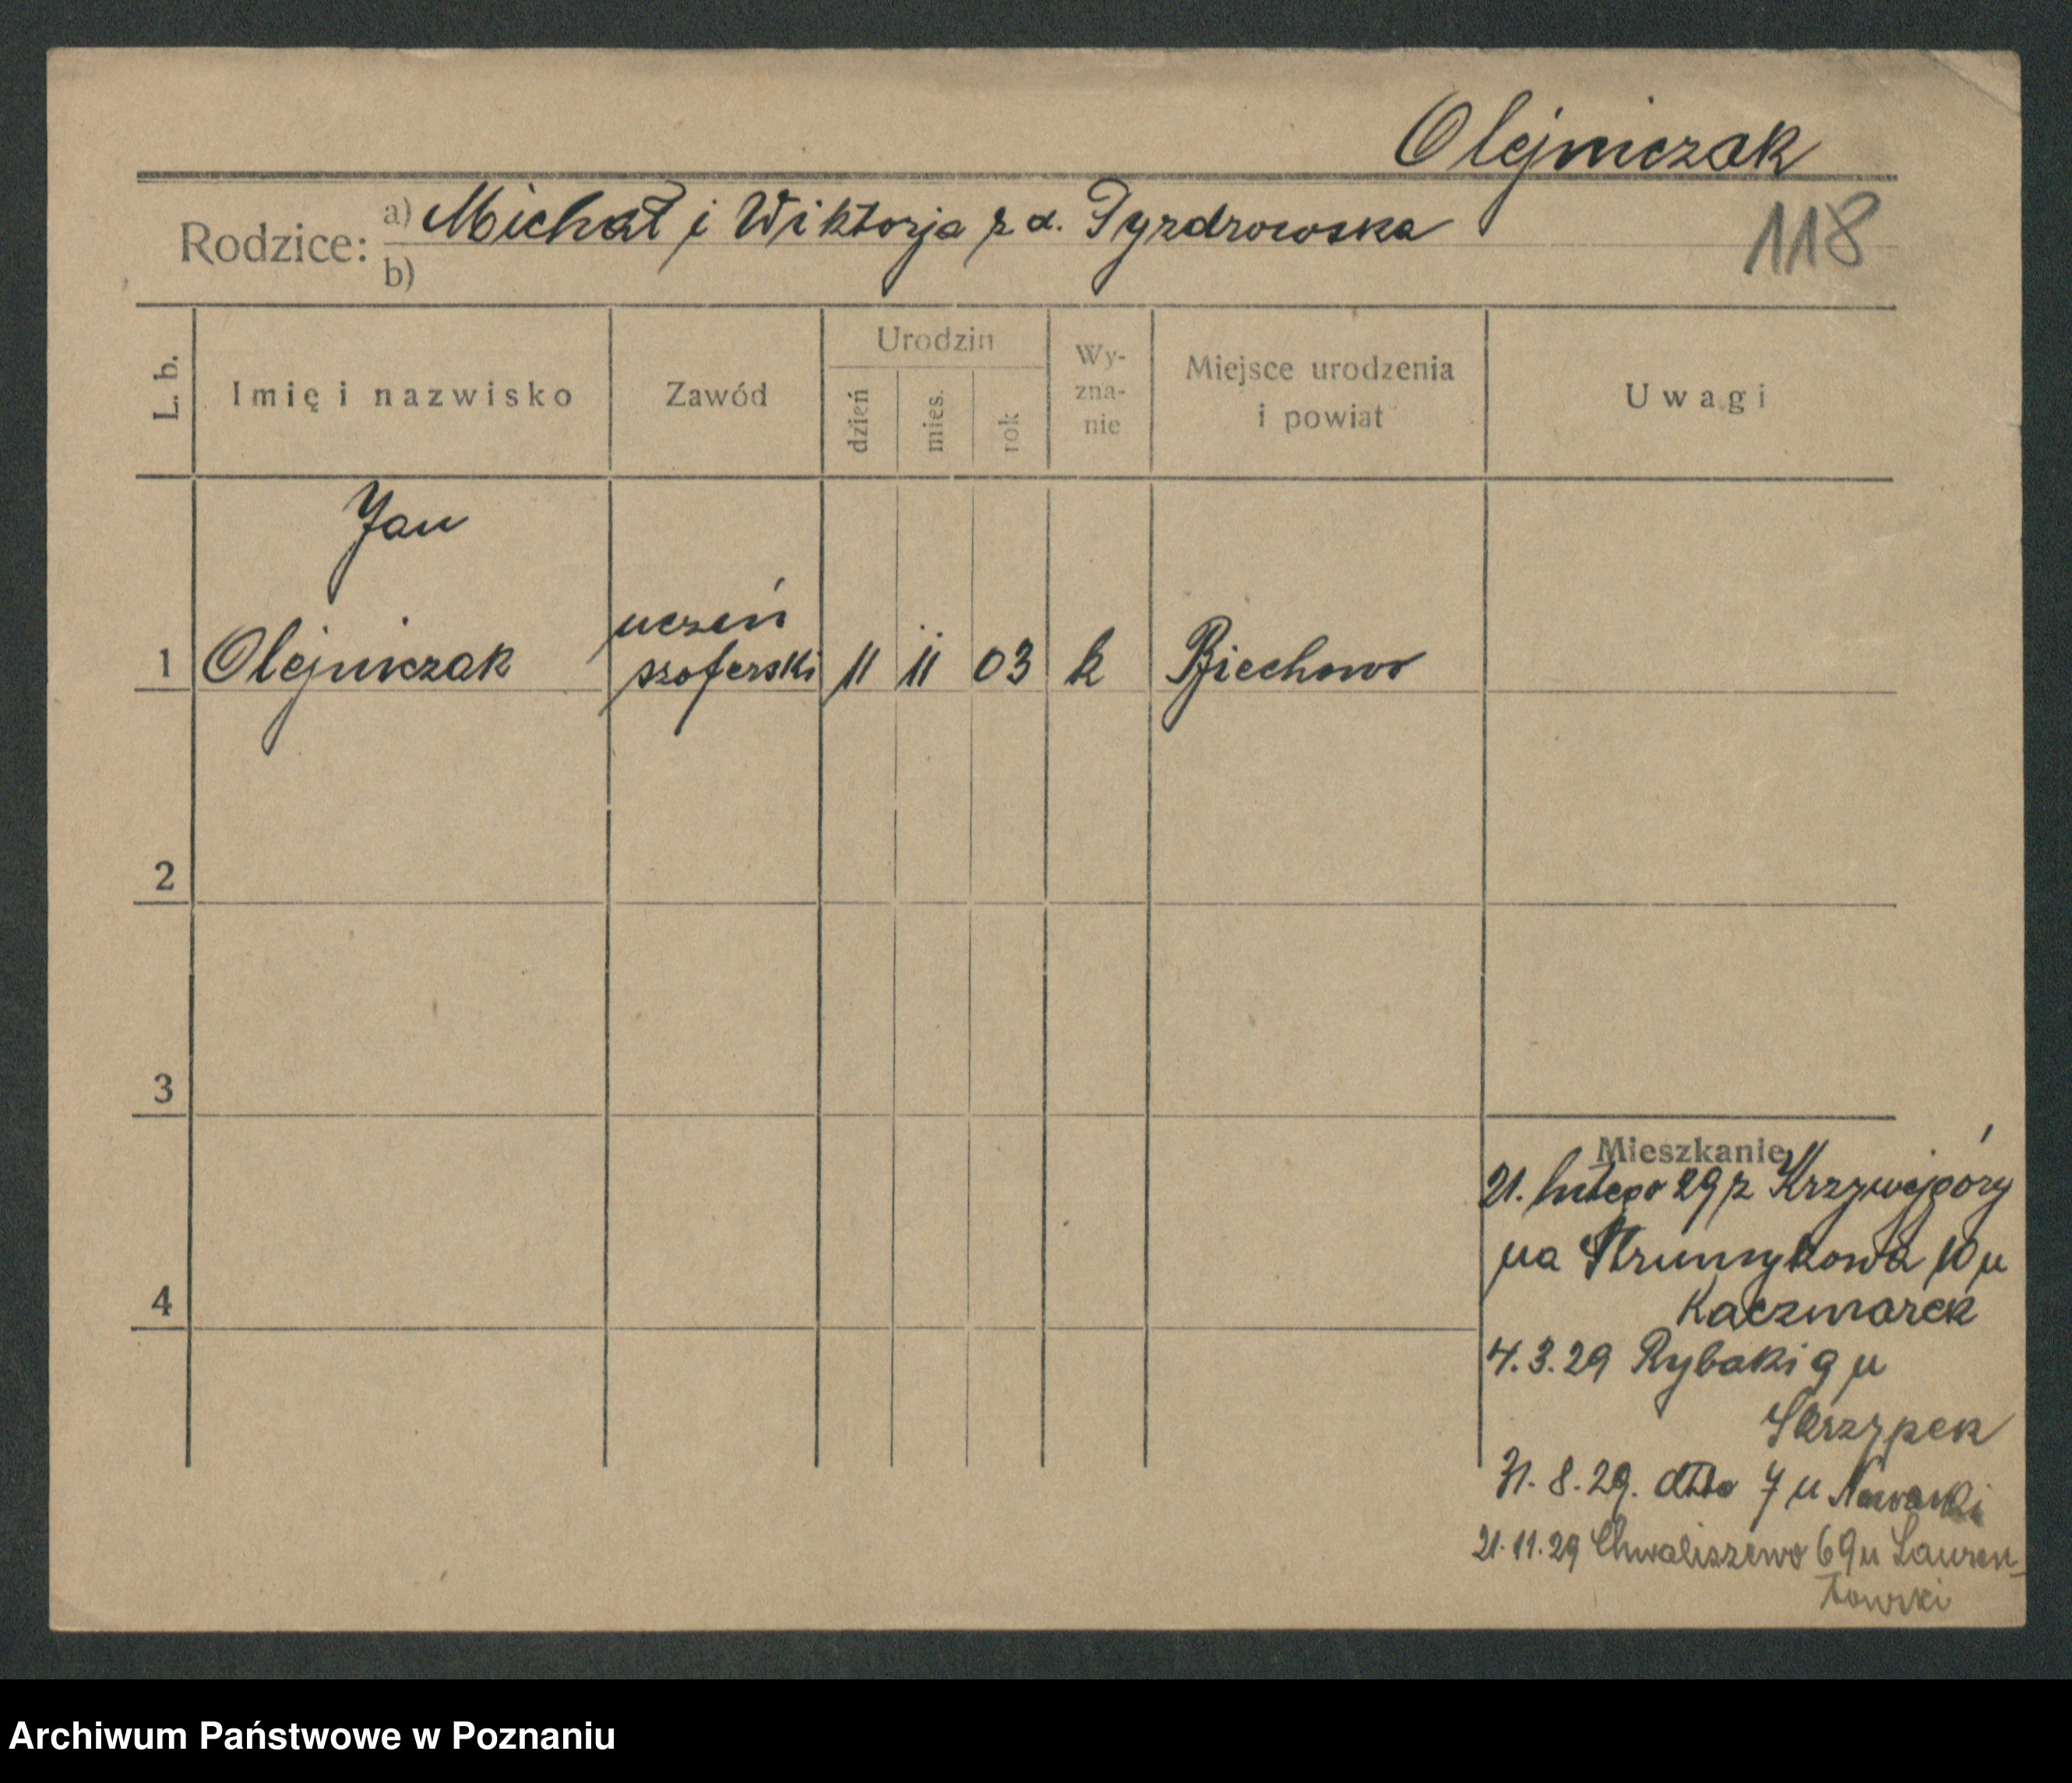 Olejniczak
Rodzice: a) Michał i Wiktorja z d. Pyzdrowska
b)
118
L. b.
Imię i nazwisko
Zawód
Urodzin
dzień
mies.
rok
Wy-
zna-
nie
Miejsce urodzenia
i powiat
Uwagi
Jan
1 Olejniczak
uczeń
szoferski
11 11 03 k Biechowo
2
3
4
Mieszkanie
21. lutego 29 z Krzywejgóry
na Strumykowa 10 u
Kaczmarek
4.3.29 Rybaki 9 u
Skrzypek
31.8.29. dtto 7 u
21.11.29 Chwaliszewo 69 u Lauren-
towski
Archiwum Państwowe w Poznaniu